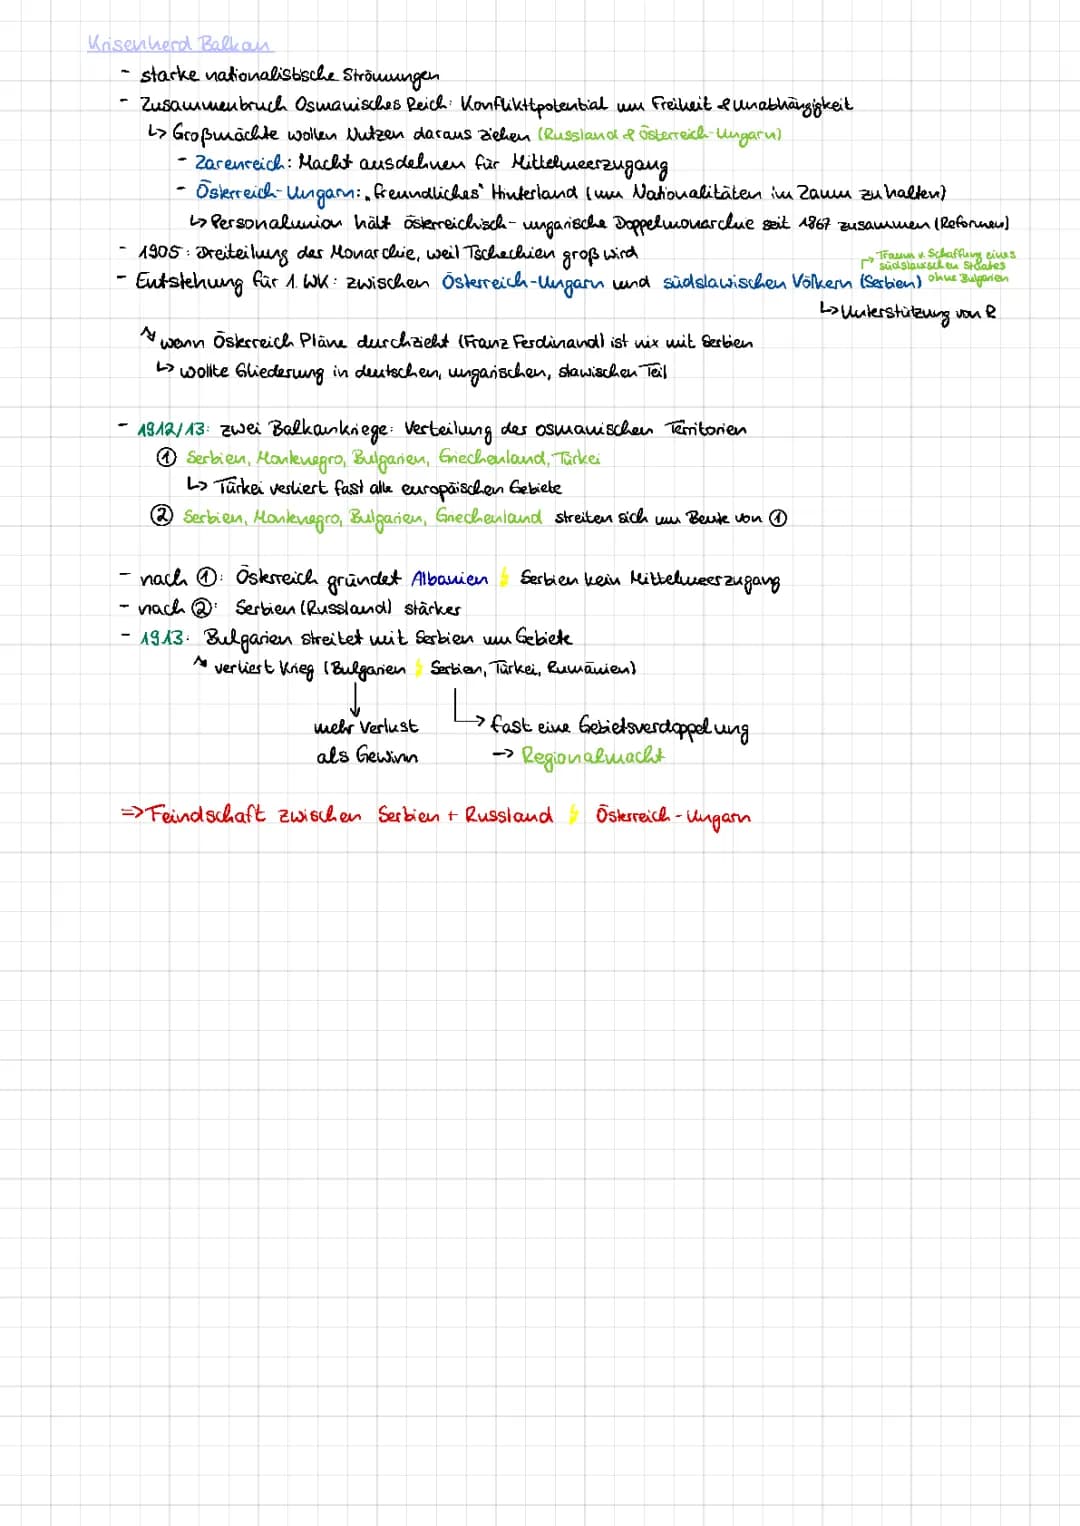 Krisenherd Balkan
- starke nationalistische Strömungen
- Zusammenbruch Osmanisches Reich: Konflikttpotential um Freiheit & Unabhängigkeit
↳ Großmächte wollen Nutzen daraus ziehen (Russland & Österreich-Ungarn)
- Zarenreich: Macht ausdehnen für Mittelmeerzugang
- Österreich-Ungarn: „freundliches" Hinterland (um Nationalitäten im Zaum zu halten)
↳ Personalunion hält österreichisch-ungarische Doppelmonarchie seit 1867 zusammen (Reformen)
- 1905: Dreiteilung der Monarchie, weil Tschechien groß wird
↱ Traum v. Schaffung eines
südslawischen Staates
ohne Bulgarien
- Entstehung für 1. WK: zwischen Österreich-Ungarn und südslawischen Völkern (Serbien)
↳ Unterstützung von R
↘ wenn Österreich Pläne durchzieht (Franz Ferdinand) ist nix mit Serbien
↳ wollte Gliederung in deutschen, ungarischen, slawischen Teil
- 1912/13: zwei Balkankriege: Verteilung der osmanischen Territorien
① Serbien, Montenegro, Bulgarien, Griechenland, Türkei
↳ Türkei verliert fast alle europäischen Gebiete
② Serbien, Montenegro, Bulgarien, Griechenland streiten sich um Beute von ①
- nach ①: Österreich gründet Albanien ⚡ Serbien kein Mittelmeerzugang
- nach ②: Serbien (Russland) stärker
- 1913: Bulgarien streitet mit Serbien um Gebiete
↘ verliert Krieg (Bulgarien ⚡ Serbien, Türkei, Rumänien)
mehr Verlust
als Gewinn
→ fast eine Gebietsverdoppelung
→ Regionalmacht
=> Feindschaft zwischen Serbien + Russland ⚡ Österreich-Ungarn